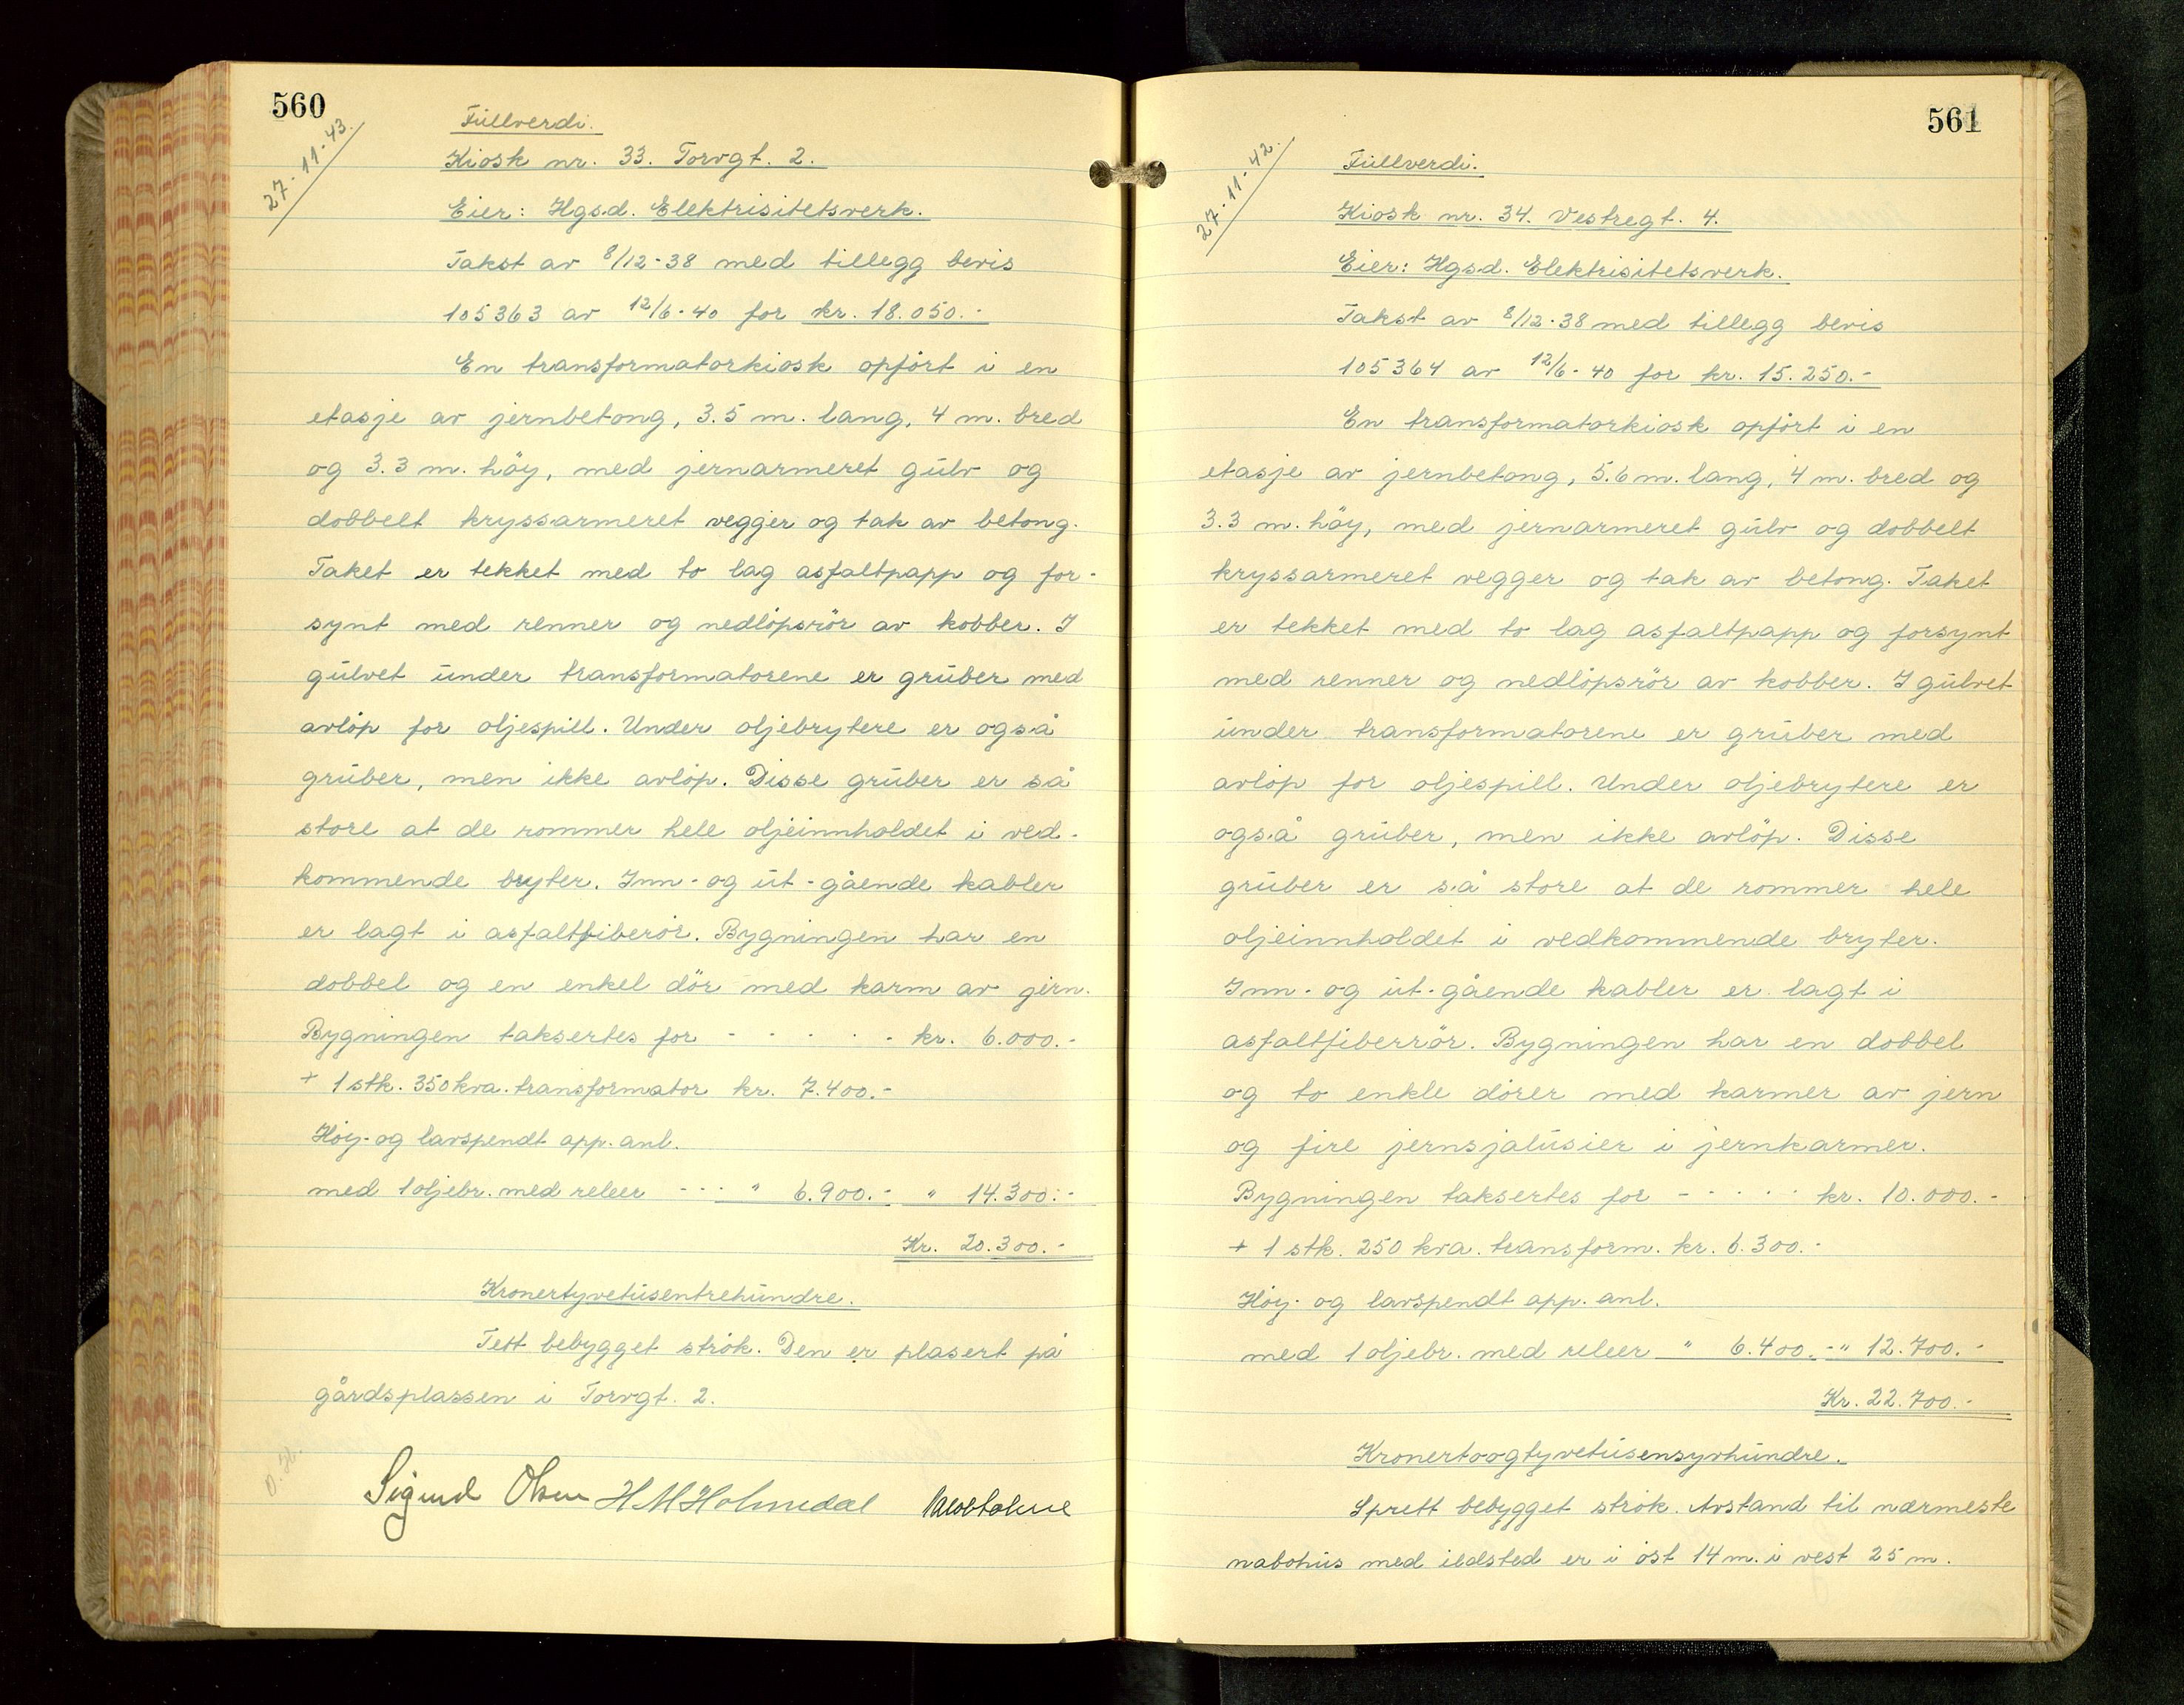 560
27-11-43.
Fullverdi.
Kiosk nr. 33. Torvgt. 2.
Eier: Hgsd. Elektrisitetsverk.
Takst av 8/12-38 med tillegg bevis
105363 av 12/6-40 for kr. 18.050.-
En transformatorkiosk opført i en
etasje av jernbetong, 3.5 m. lang, 4 m. bred
og 3.3 m. höy, med jernarmeret gulv og
dobbelt kryssarmeret vegger og tak av betong.
Taket er tekket med to lag asfaltpapp og for-
synt med renner og nedlöpsrör av kobber. I
gulvet under transformatorene er gruber med
avlöp for oljespill. Under oljebrytere er også
gruber, men ikke avlöp. Disse gruber er så
store at de rommer hele oljeinnholdet i ved-
kommende bryter. Inn- og ut-gående kabler
er lagt i asfaltfiberör. Bygningen har en
dobbel og en enkel dör med karm av jern.
Bygningen taksertes for - - - - - kr. 6.000.-
+ 1 stk. 350 kva. transformator kr. 7.400.-
Höy- og lavspendt app. anl.
med 1 oljebr. med releer - - - " 6.900.- " 14.300.-
Kr. 20.300.-
Kronertyvetusentrehundre.
Tett bebygget strök. Den er plasert på
gårdsplassen i Torvgt. 2.
Sigurd Olsen H M Holmedal
561
27-11-42.
Fullverdi.
Kiosk nr. 34. Vestregt. 4.
Eier: Hgsd. Elektrisitetsverk.
Takst av 8/12-38 med tillegg bevis
105364 av 12/6-40 for kr. 15.250.-
En transformatorkiosk opfört i en
etasje av jernbetong, 5.6 m. lang, 4 m. bred og
3.3 m. höy, med jernarmeret gulv og dobbelt
kryssarmeret vegger og tak av betong. Taket
er tekket med to lag asfaltpapp og forsynt
med renner og nedlöpsrör av kobber. I gulvet
under transformatorene er gruber med
avlöp for oljespill. Under oljebrytere er
også gruber, men ikke avlöp. Disse
gruber er så store at de rommer hele
oljeinnholdet i vedkommende bryter.
Inn- og ut-gående kabler er lagt i
asfaltfiberrör. Bygningen har en dobbel
og to enkle dörer med karmer av jern
og fire jernsjalusier i jernkarmer.
Bygningen taksertes for - - - - - kr. 10.000.-
+ 1 stk. 250 kva. transform. kr. 6.300.-
Höy- og lavspendt app. anl.
med 1 oljebr. med releer " 6.400.- " 12.700.-
Kr. 22.700.-
Kronertoogtyvetusensyvhundre.
Sprett bebygget strök. Avstand til nærmeste
nabohus med ildsted er i öst 14 m. i vest 25 m.